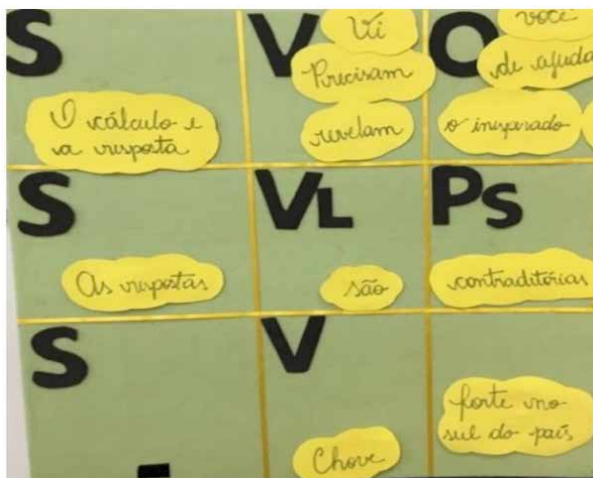 S
V
O
Vi
você
Precisam
de ajuda
O cálculo e
a resposta
revelam
o inesperado
S
VL
Ps
As respostas
são
contraditórias
S
V
forte no
sul do país
Chove